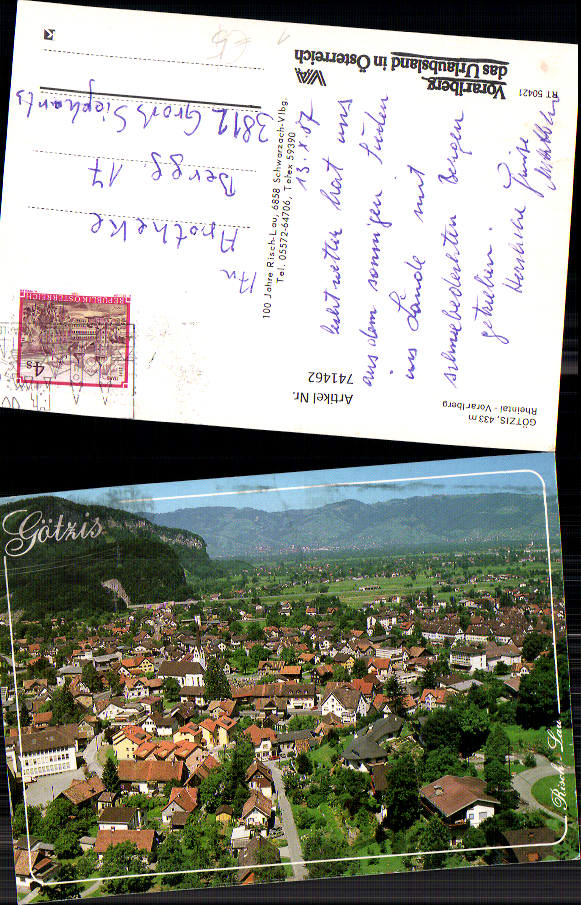 GÖTZIS, 433 m
Rheintal - Vorarlberg
Artikel Nr.
741462
13. X. 87
hat uns
aus dem sonnigen Süden
ins Lände mit
schneebedeckten Bergen
getrieben.
Herzliche Grüße
100 Jahre Risch-Lau, 6858 Schwarzach-Vlbg.
Tel. 05572-64706, Telex 59390
RT 50421
Vorarlberg,
das Urlaubsland in Österreich
REPUBLIK ÖSTERREICH
4 S
An
Apotheke
Bergg 17
3812 Groß Siegharts
Götzis
Risch-Lau